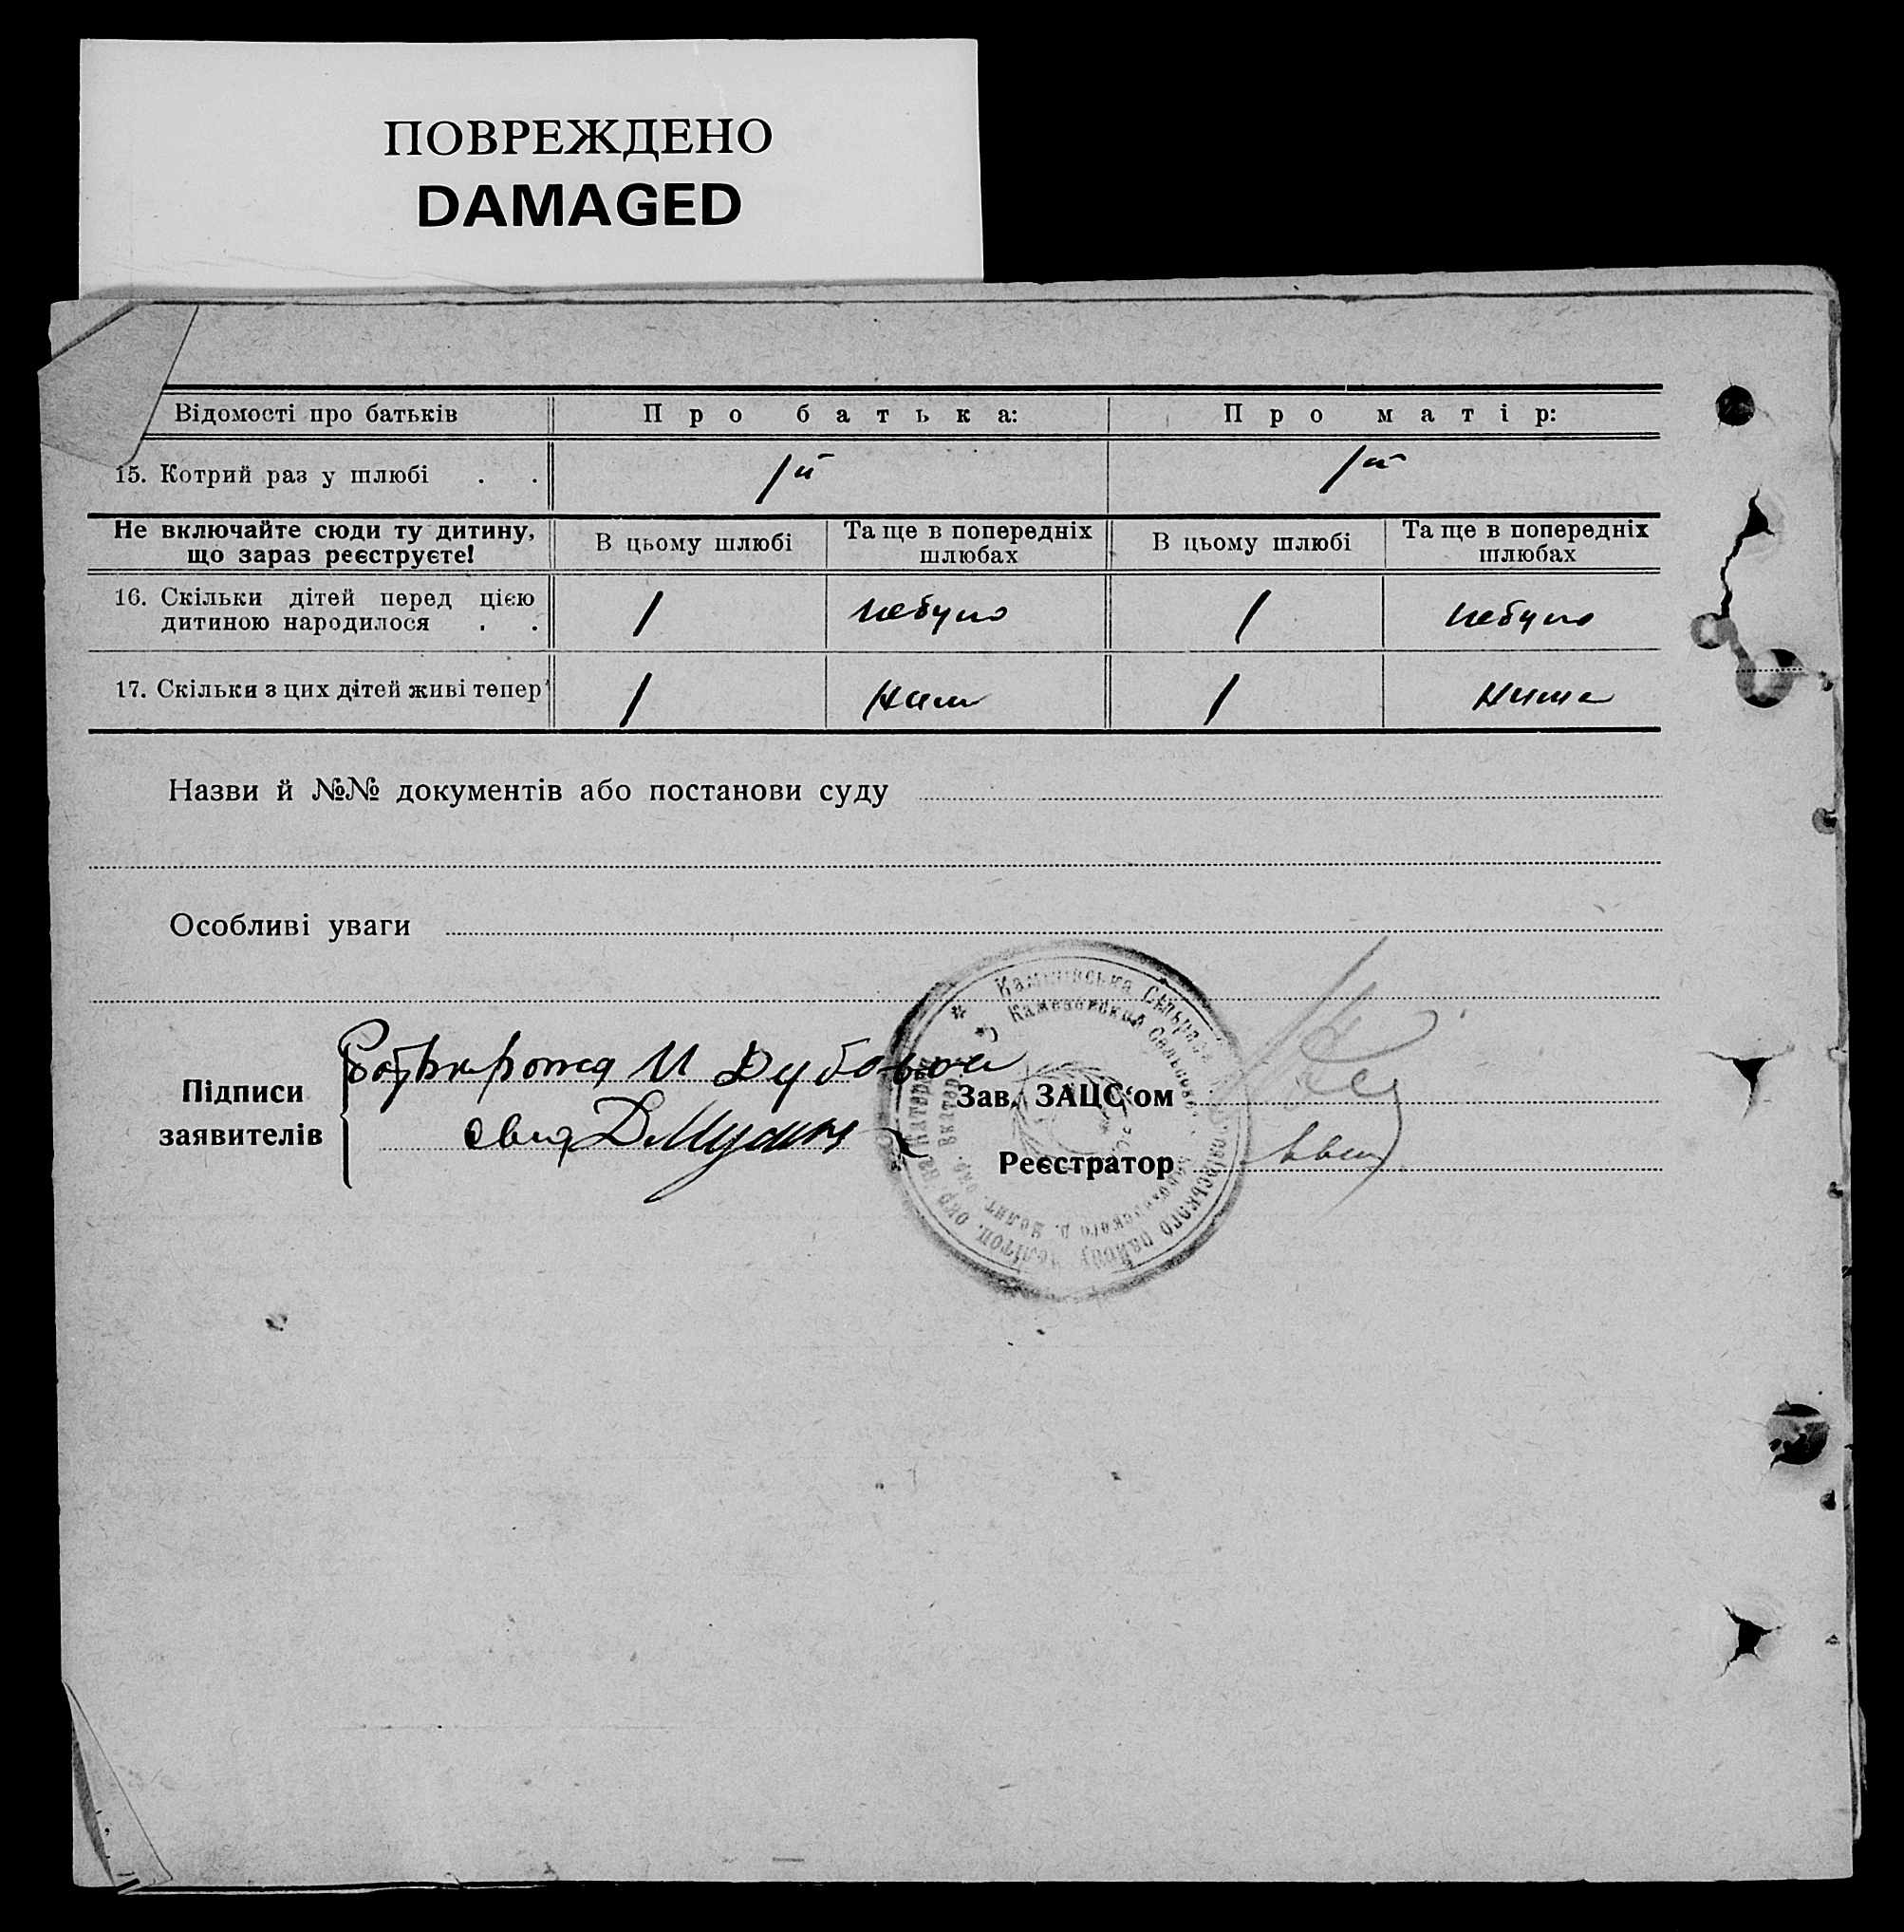 ПОВРЕЖДЕНО
DAMAGED
Відомості про батьків Про батька: Про матір:
15. Котрий раз у шлюбі . . 1й 1й
Не включайте сюди ту дитину, що зараз реєструєте! В цьому шлюбі Та ще в попередніх шлюбах В цьому шлюбі Та ще в попередніх шлюбах
16. Скільки дітей перед цією
дитиною народилося . . 1 небуло 1 небуло
17. Скільки з цих дітей живі тепер 1 1
Назви й №№ документів або постанови суду
Особливі уваги
Підписи
заявителів
И Дубовой
Зав. ЗАЦС‘ом
Реєстратор
Кам Сільрада
району Мелітоп. окр на Катерин